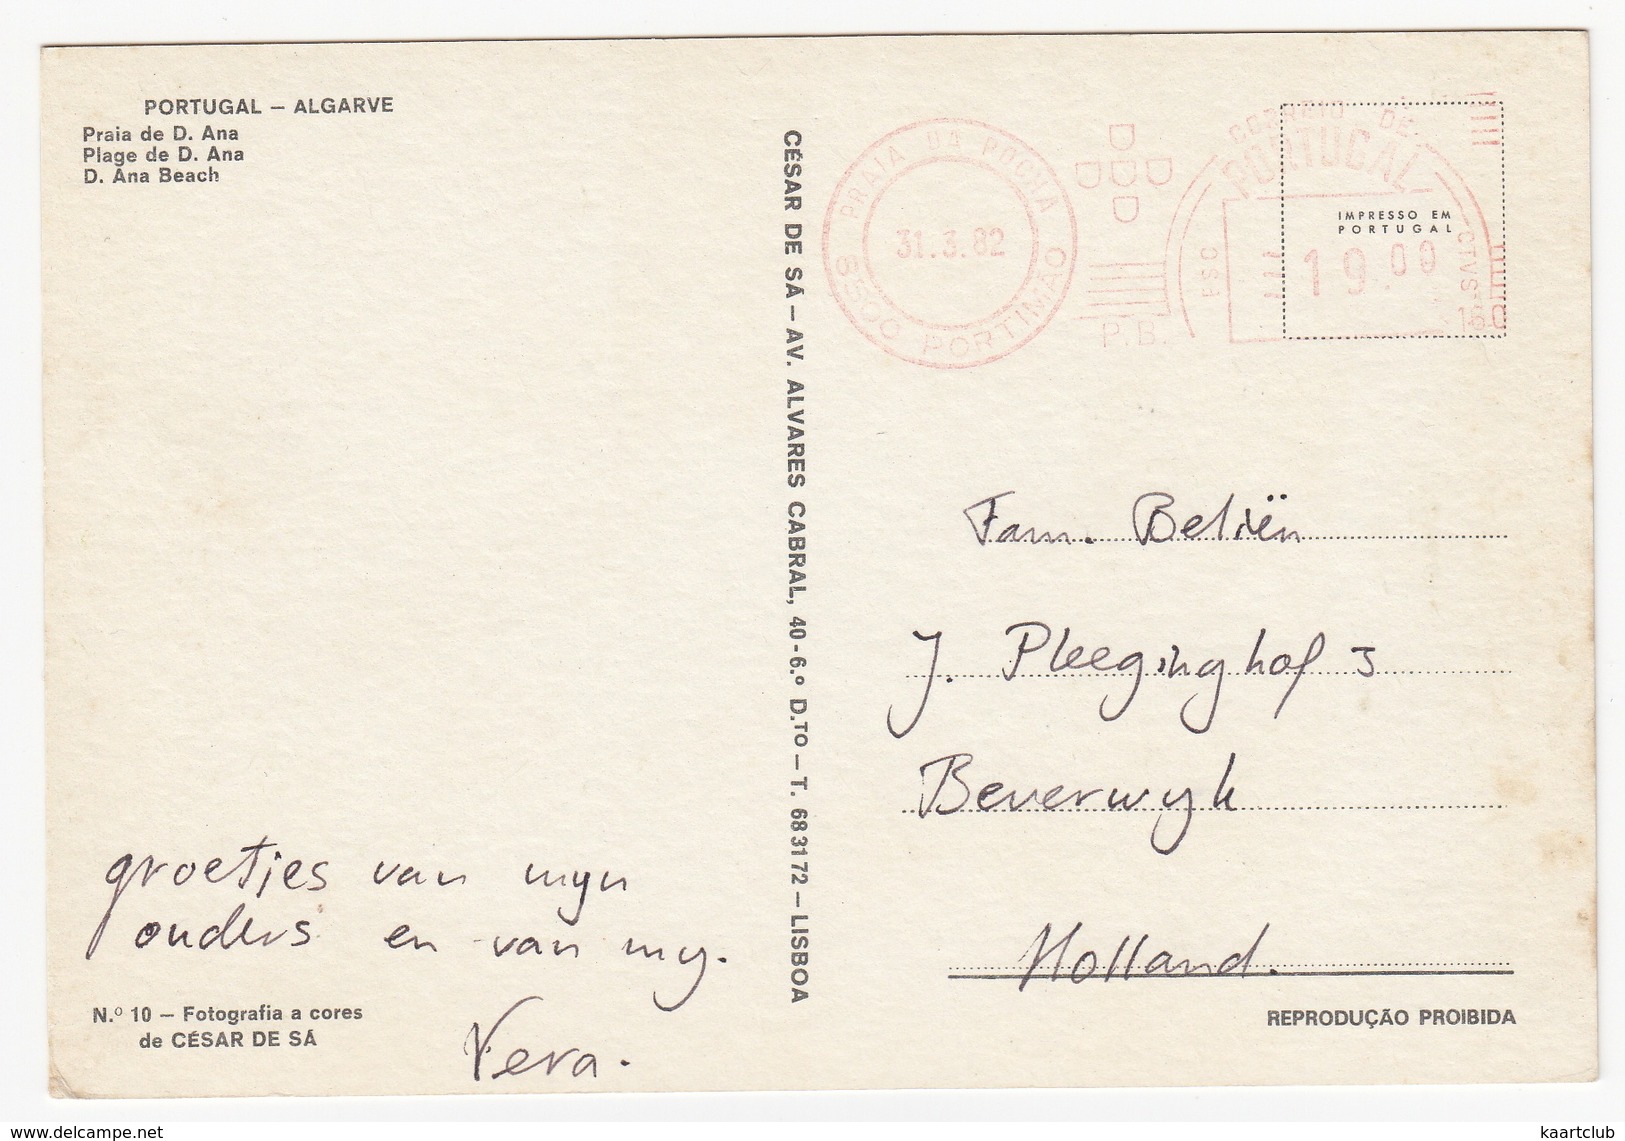 PORTUGAL – ALGARVE
Praia de D. Ana
Plage de D. Ana
D. Ana Beach
groetjes van mijn
ouders en van mij.
Vera.
N.º 10 – Fotografia a cores
de CÉSAR DE SÁ
CÉSAR DE SÁ – AV. ALVARES CABRAL, 40-6.º D.TO – T. 683172 – LISBOA
PRAIA DA ROCHA
31.3.82
8500 PORTIMÃO
P.B.
CORREIO DE
PORTUGAL
IMPRESSO EM
PORTUGAL
ESC
19.00
CTVS
160
Fam. Beliën
J. Pleeginghof 3
Beverwijk
Holland.
REPRODUÇÃO PROIBIDA
www.delcampe.net
kaartclub